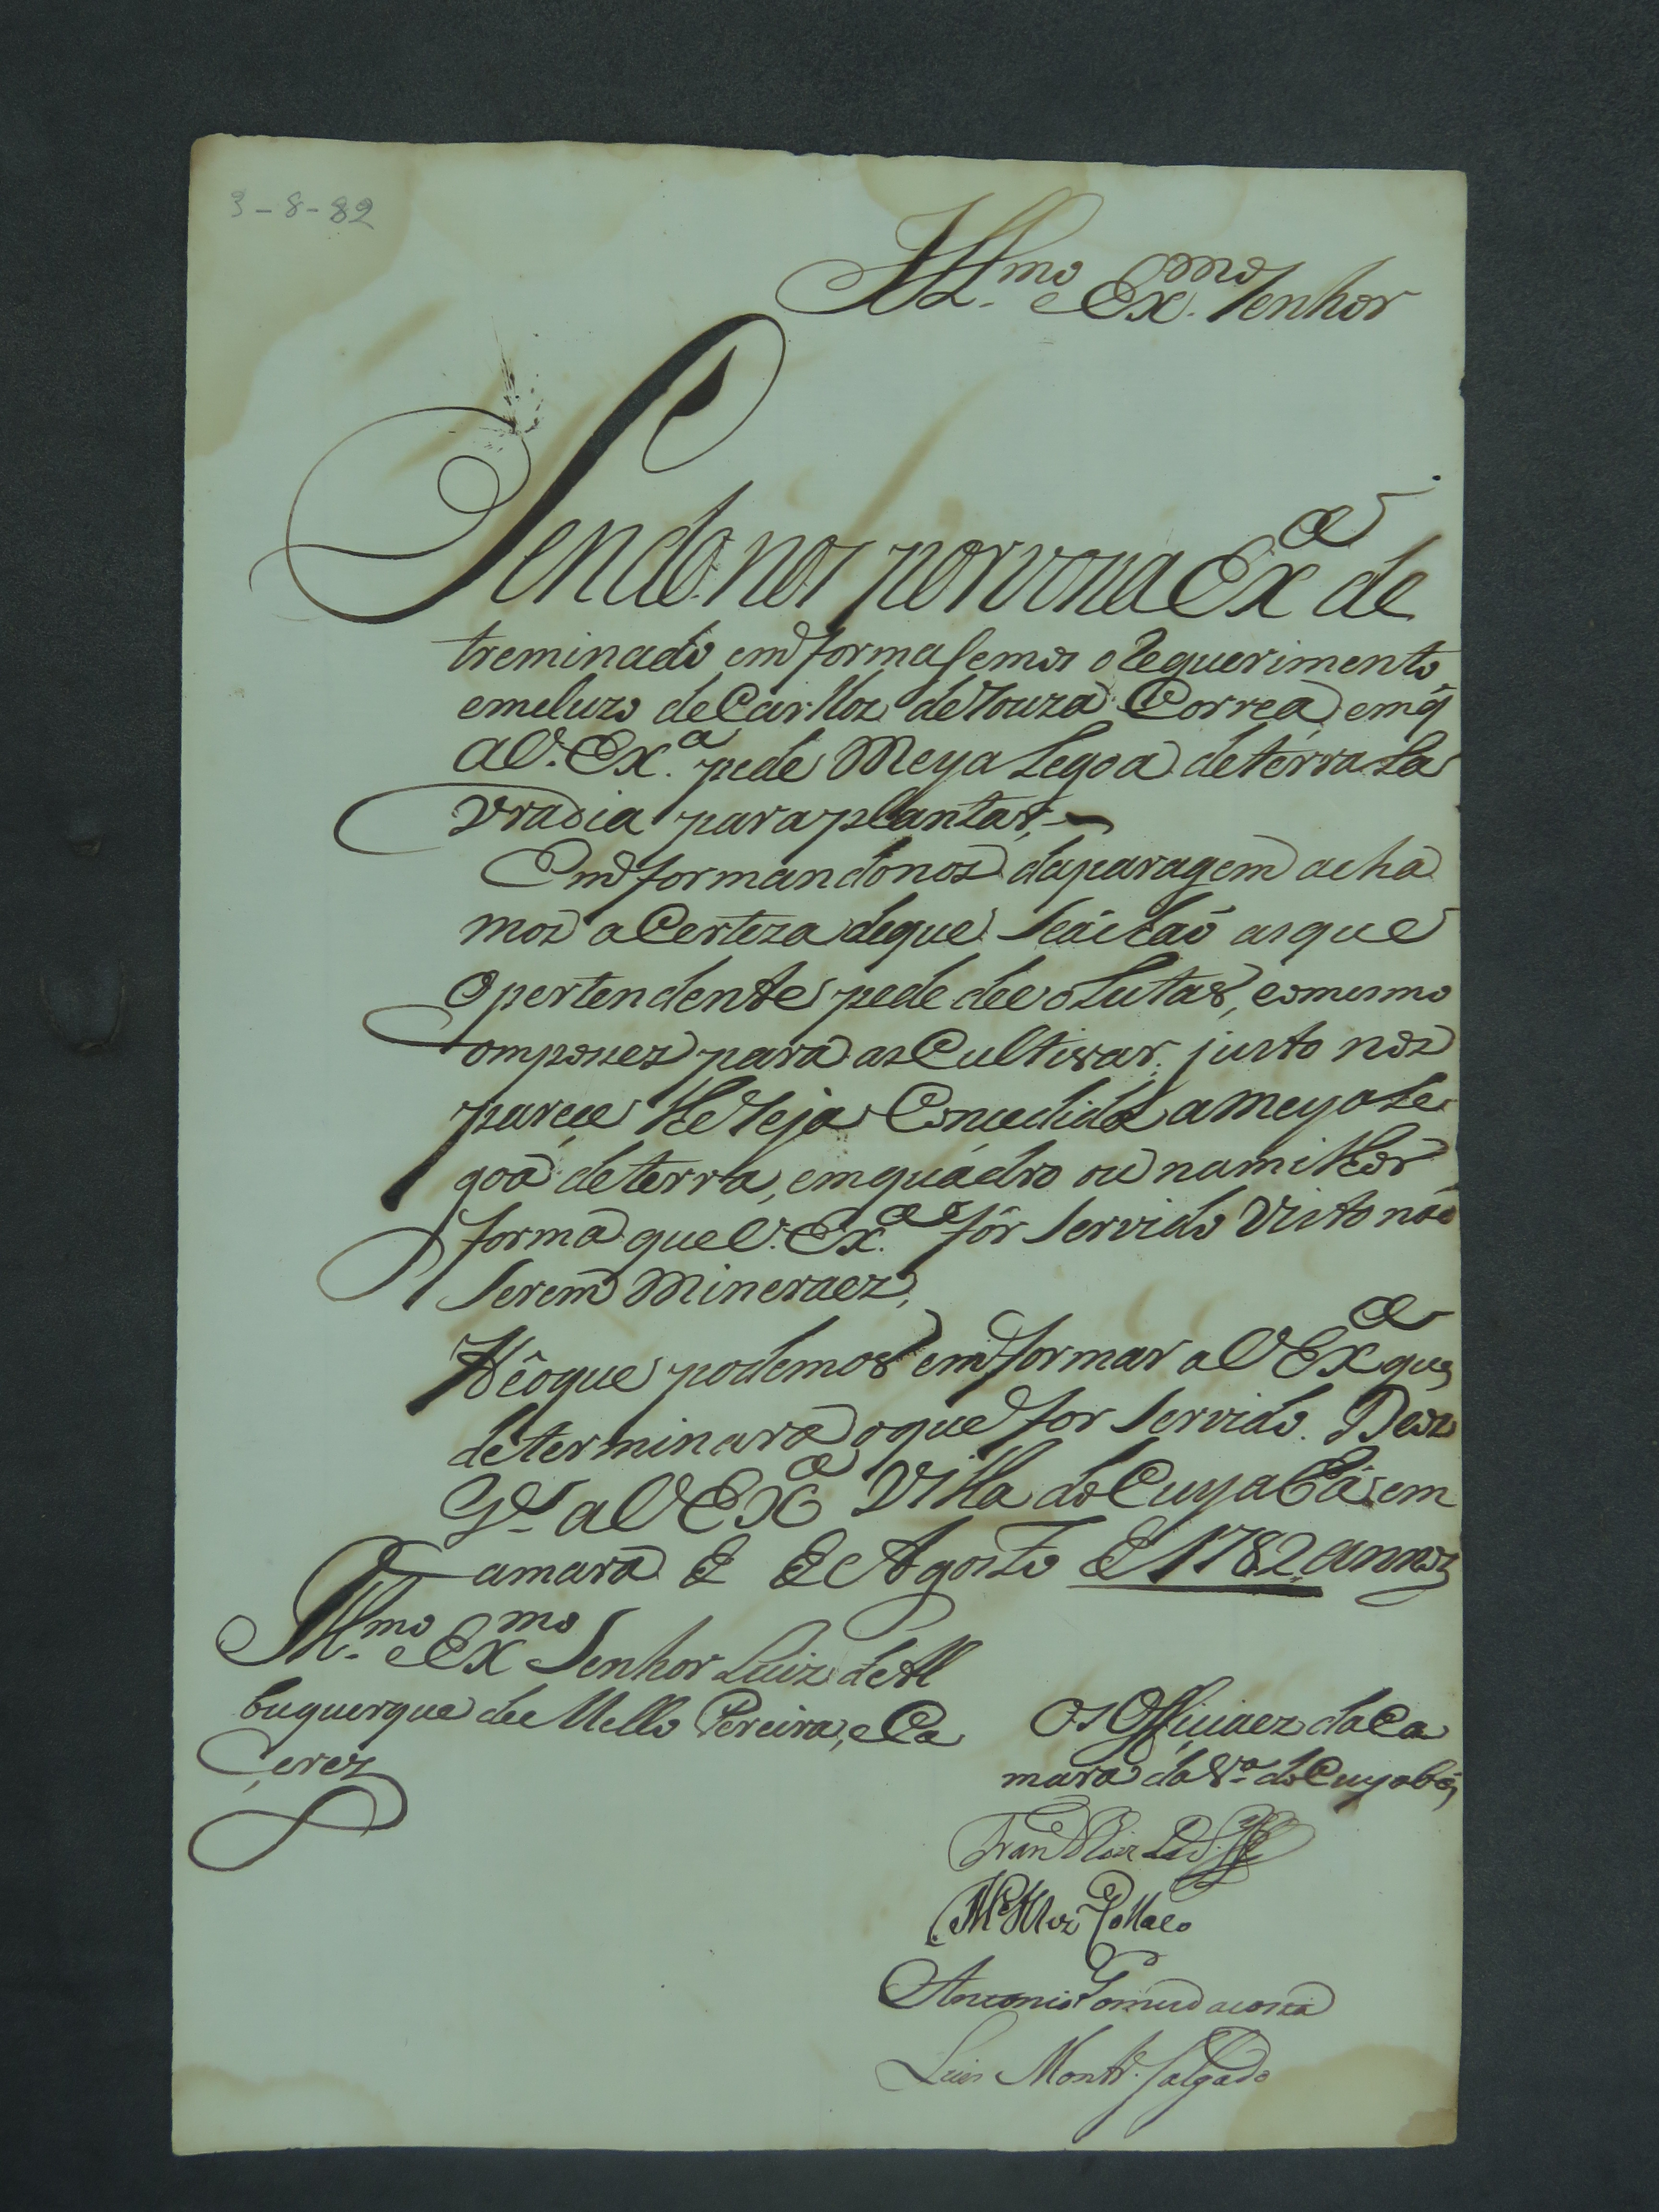 3-8-82
Ill.mo e Ex.mo Senhor
Sendo nos por vossa Exª de
treminado emformasemos o Requerimento
emcluzo de Carlloz de Souza Correa, em q̃
a V. Ex.ª pede Meya Legoa de terra La
vradia para plantar,
Emformandonoz da paragem acha
moz a Certeza de que Seácháó as que
o pertendente pede deeolutas, e o mesmo
Com posses para as Cultivar; justo nos
parece lle Seja Concedida a meya Le
goa de terra, em quadro ou na milhor
forma que V. Ex.ª fôr Servido Visto não
Serem Mineraez,
Hé o que podemos emformar a V Exª que
determinara o que for Servido. Deoz
G.e a V Exª Villa do Cuyabá em
Camara de Agosto de 1782 annos
Ill.mo e Ex.mo Senhor Luiz de Al
buquerque de Mello Pereira, e Ca
çerez
Os Offiçiaez da Ca
mara da V.ª do Cuyabá,
Fran
Antonio Gomes da costa
Luis Montr.º Salgado